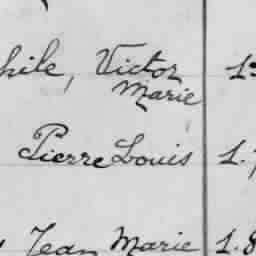 hile, Victor
Marie
Pierre Louis 1.
Jean Marie 1.8